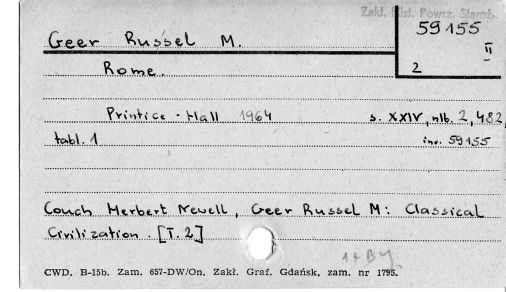 Zakł. Hist. Powsz. Staroż.
59155
II
2
Geer Russel M.
Rome.
Printice - Hall 1964 s. XXIV, nlb. 2, 482,
tabl. 1 inv. 59155
Couch Herbert Newell, Geer Russel M: Classical
Civilization. [T. 2]
CWD. B-15b. Zam. 657-DW/On. Zakł. Graf. Gdańsk, zam. nr 1795.